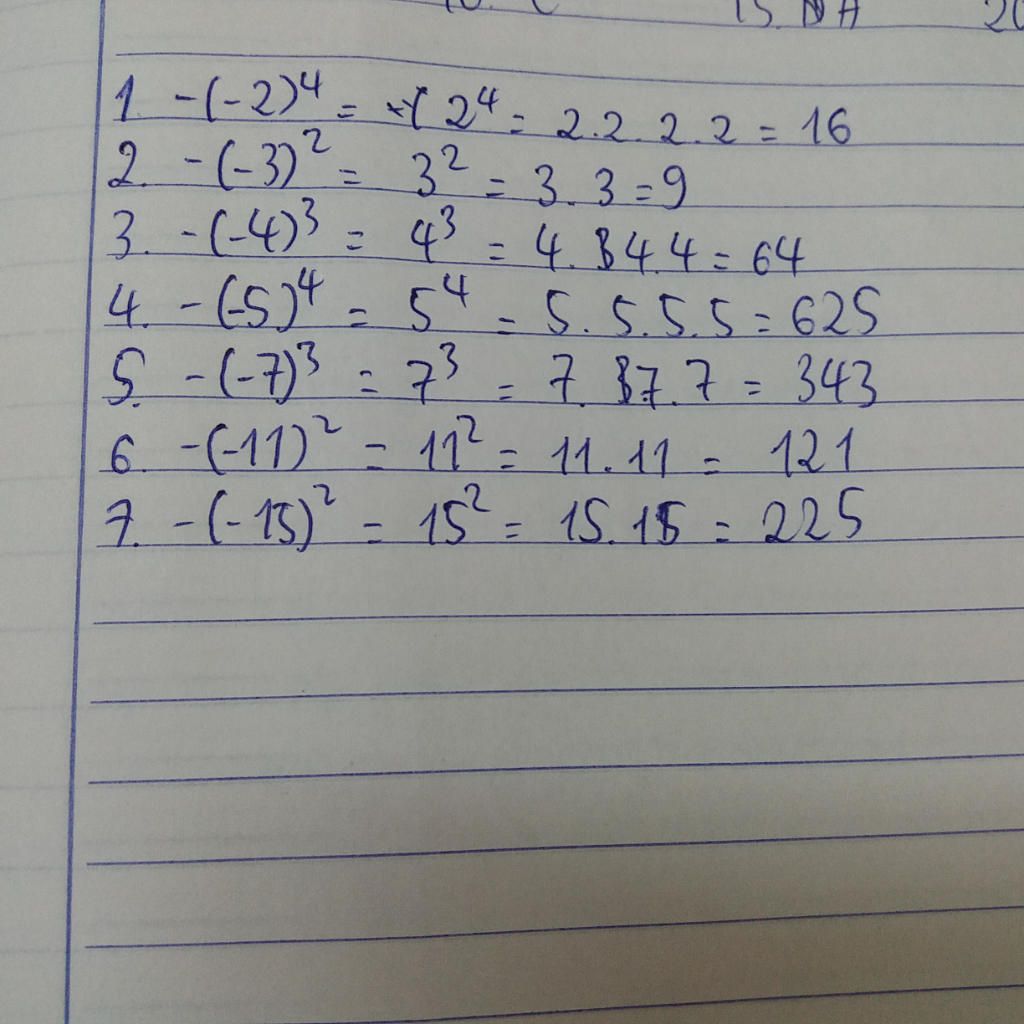 15. A
1. -(-2)⁴ = 2⁴ = 2.2.2.2 = 16
2. -(-3)² = 3² = 3.3 = 9
3. -(-4)³ = 4³ = 4.4.4 = 64
4. -(-5)⁴ = 5⁴ = 5.5.5.5 = 625
5. -(-7)³ = 7³ = 7.7.7 = 343
6. -(-11)² = 11² = 11.11 = 121
7. -(-15)² = 15² = 15.15 = 225